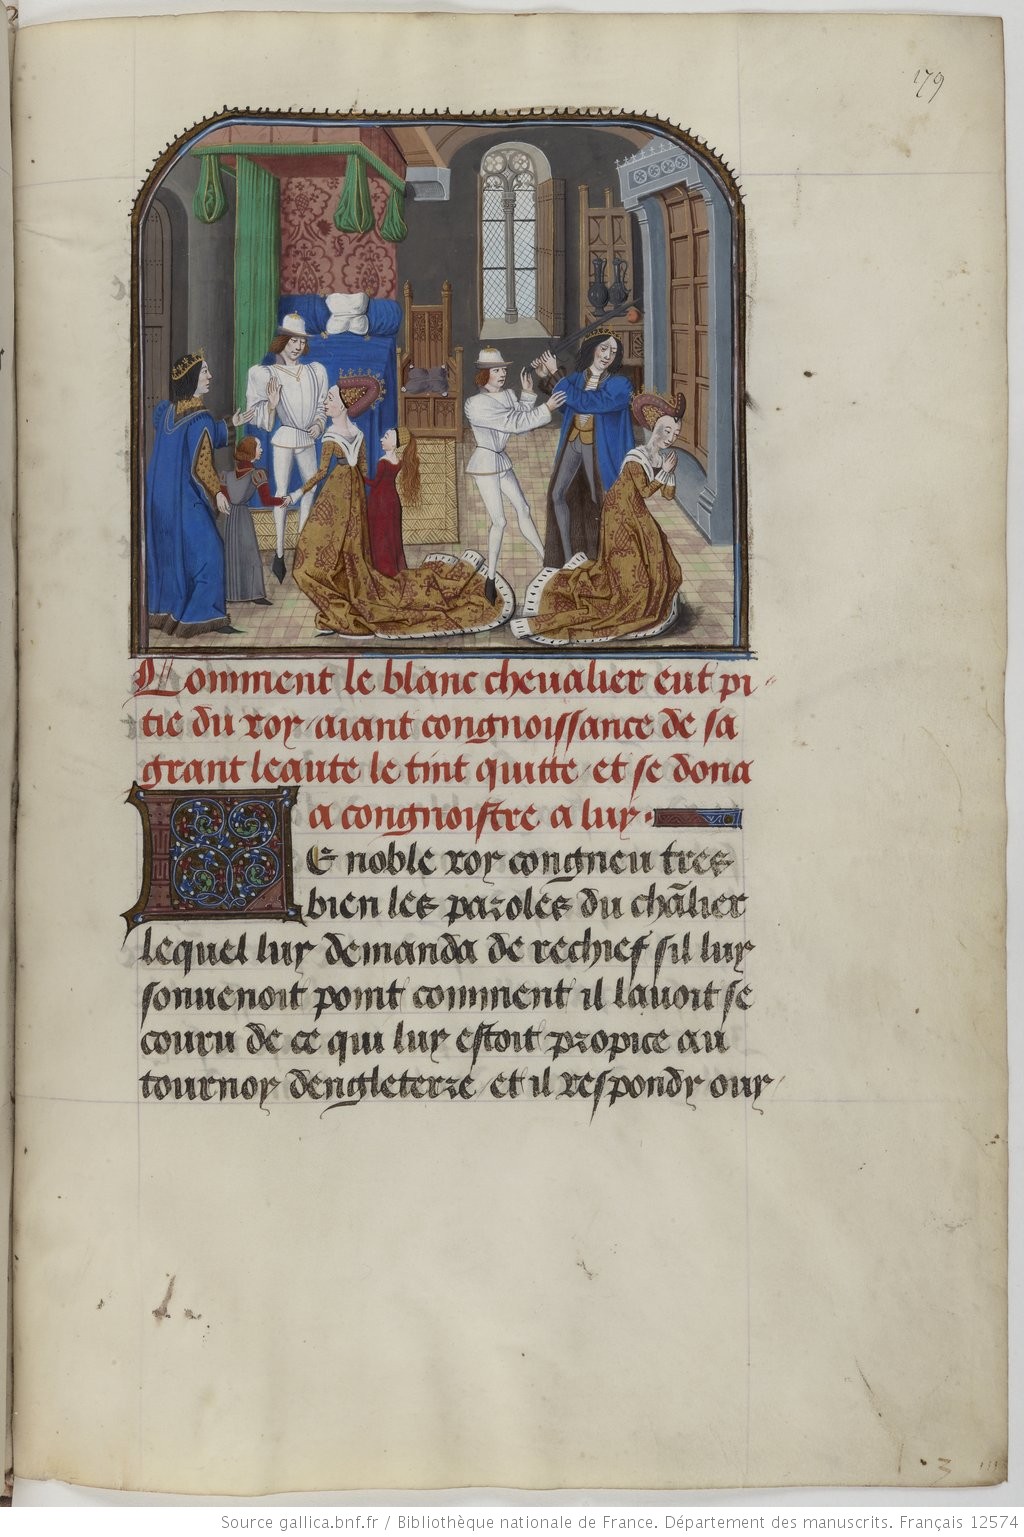 179
Comment le blanc cheualier eut pi
tie du roy aiant congnoissance de sa
grant leaute le tint quitte et se dona
a congnoistre a luy.
Le noble roy congneu tres
bien les paroles du chãlier
lequel luy demanda de rechief sil luy
souuenoit point comment il lauoit se
couru de ce qui luy estoit propice au
tournoy dengleterre / et il respondy ouy /
Source gallica.bnf.fr / Bibliothèque nationale de France. Département des manuscrits. Français 12574